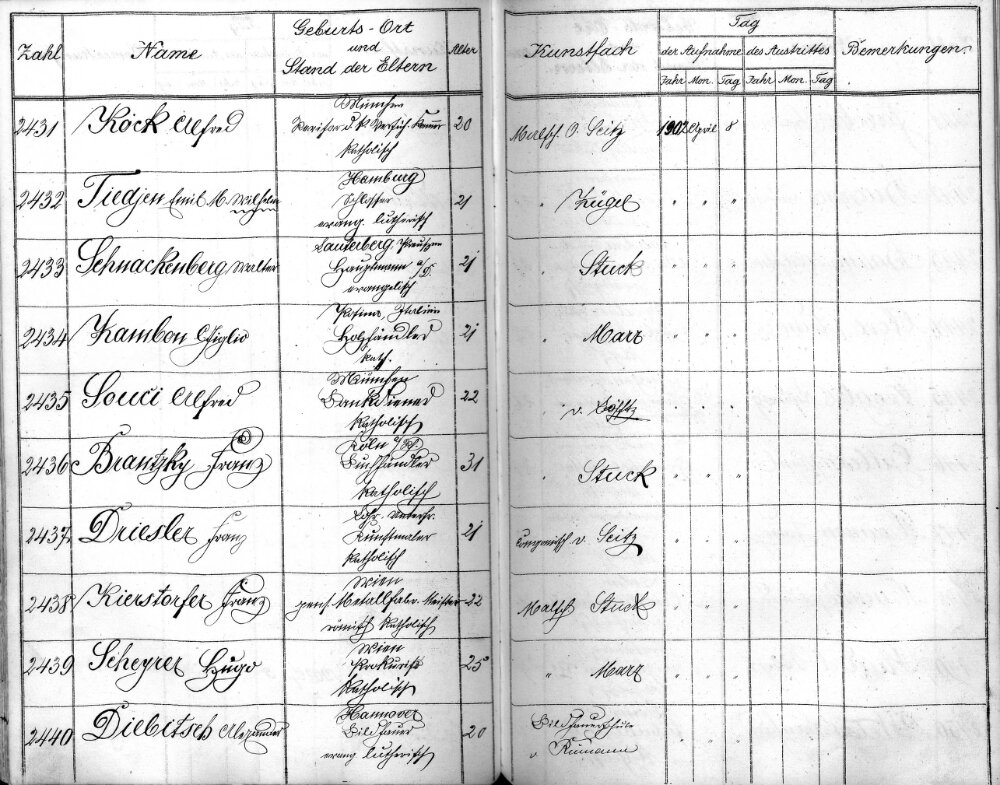 Zahl Name Geburts-Ort und Stand der Eltern Alter Kunstfach Tag der Aufnahme Jahr Mon. Tag des Austrittes Jahr Mon. Tag Bemerkungen.
2431 Köck Alfred München 20 Malsch O. Seitz 1902 April 8
katholisch
2432 Tiedjen Emil M. Wilhelm Hamburg 21 " Zügel " " "
Schlosser
evang. lutherisch
2433 Schnackenberg Walter Lauterberg, Preussen 21 " Stuck " " "
Hauptmann a/D.
evangelisch
2434 Kambon Giglio Italien 21 " Marr " " "
Holzhändler
kath.
2435 Souci Alfred München 22 " v. Löfftz " " "
Bankdiener
katholisch
2436 Brantzky Franz Köln a/Rh. 31 " Stuck " " "
Buchhändler
katholisch
2437 Driesler Franz Lohr. Unterfr. 21 Componirsch v. Seitz " " "
Kunstmaler
katholisch
2438 Kierstorfer Franz Wien 22 Malsch Stuck " " "
pens. Metallfabr. Meister
römisch katholisch
2439 Scheyrer Hugo Wien 25 " Marr " " "
Prokurist
katholisch
2440 Diebitsch Alexander Hannover 20 Bildhauerschule " " "
Bildhauer v. Rümann
evang. lutherisch